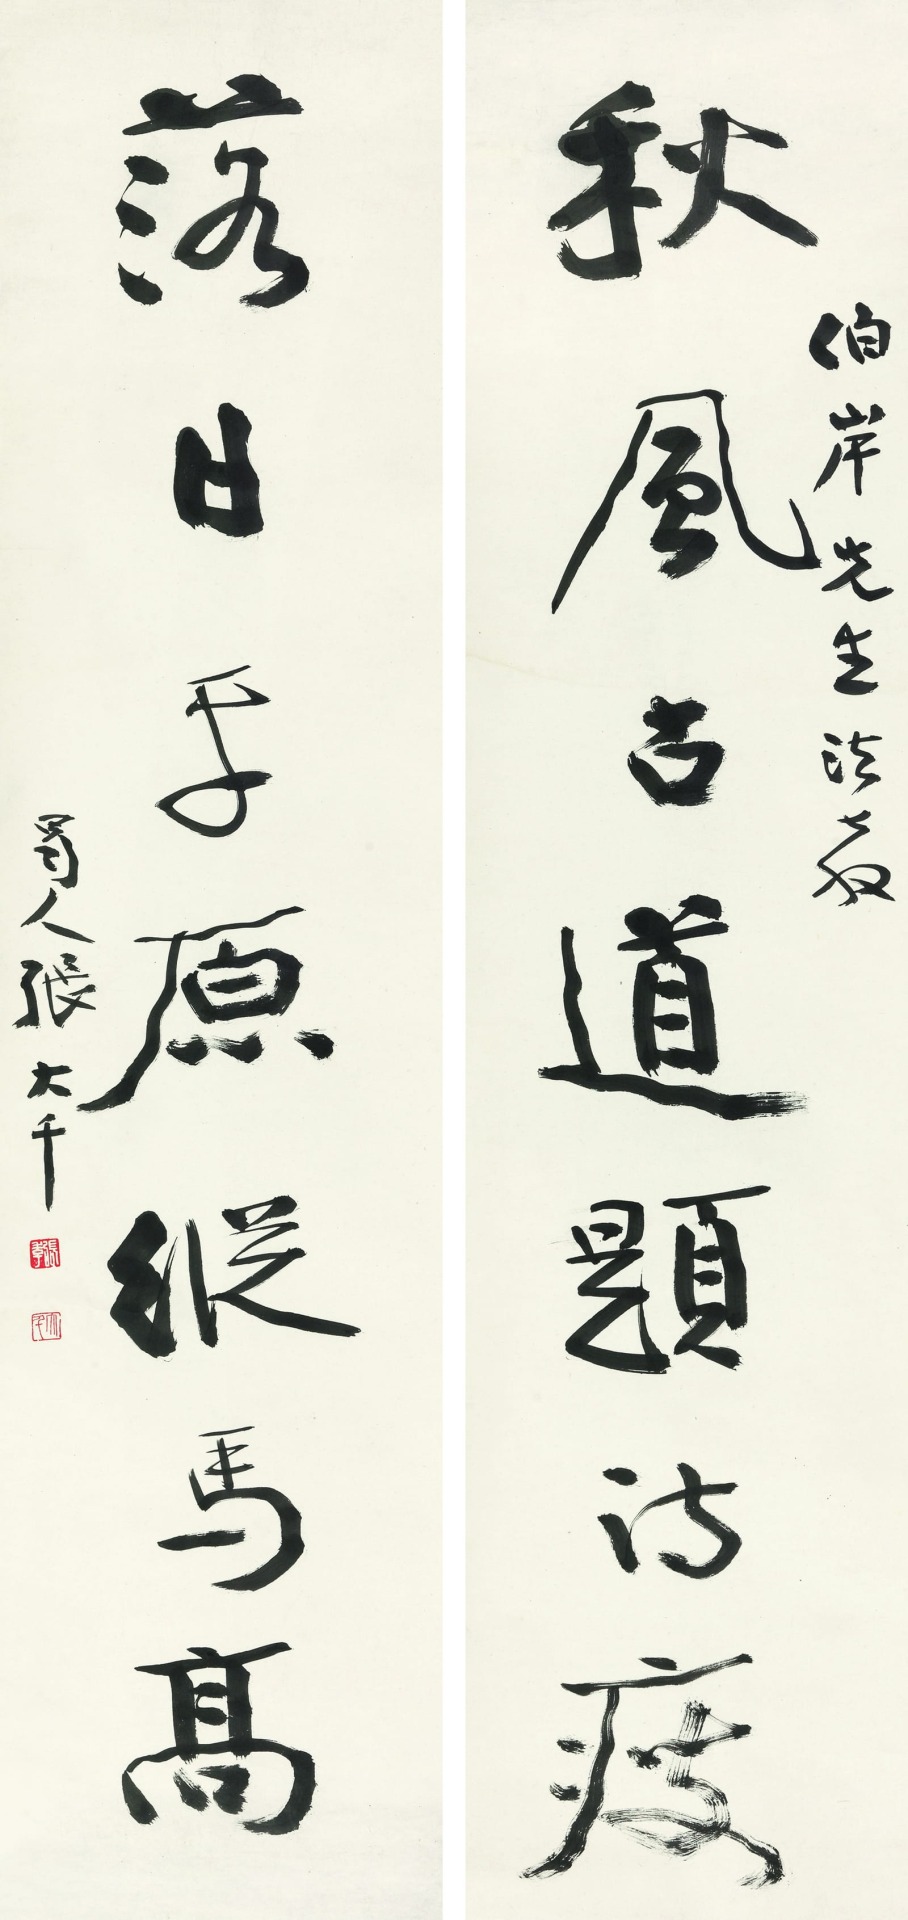 伯岸先生法教
秋風古道題詩瘦
落日平原縱馬高
蜀人張大千
大千